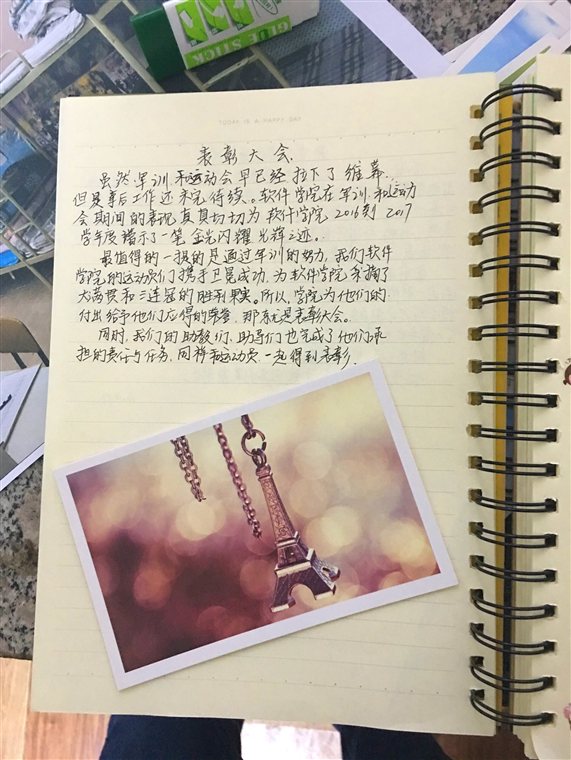 GLUE STICK
TODAY IS A HAPPY DAY
表彰大会
虽然军训和运动会早已经拉下了帷幕..
但是事后工作还未完待续。软件学院在军训和运动
会期间的表现真真切切为软件学院2016到2017
学年度谱示了一笔金光闪耀光辉之迹。
最值得的一提的是通过军训的努力,我们软件
学院的运动员们携手卫冕成功,为软件学院采摘了
大满贯和三连冠的胜利果实。所以,学院为他们的
付出给予他们应得的荣誉,那就是表彰大会。
同时,我们的助教们,助导们也完成了他们承
担的责任与任务,同样和运动员一起得到表彰.